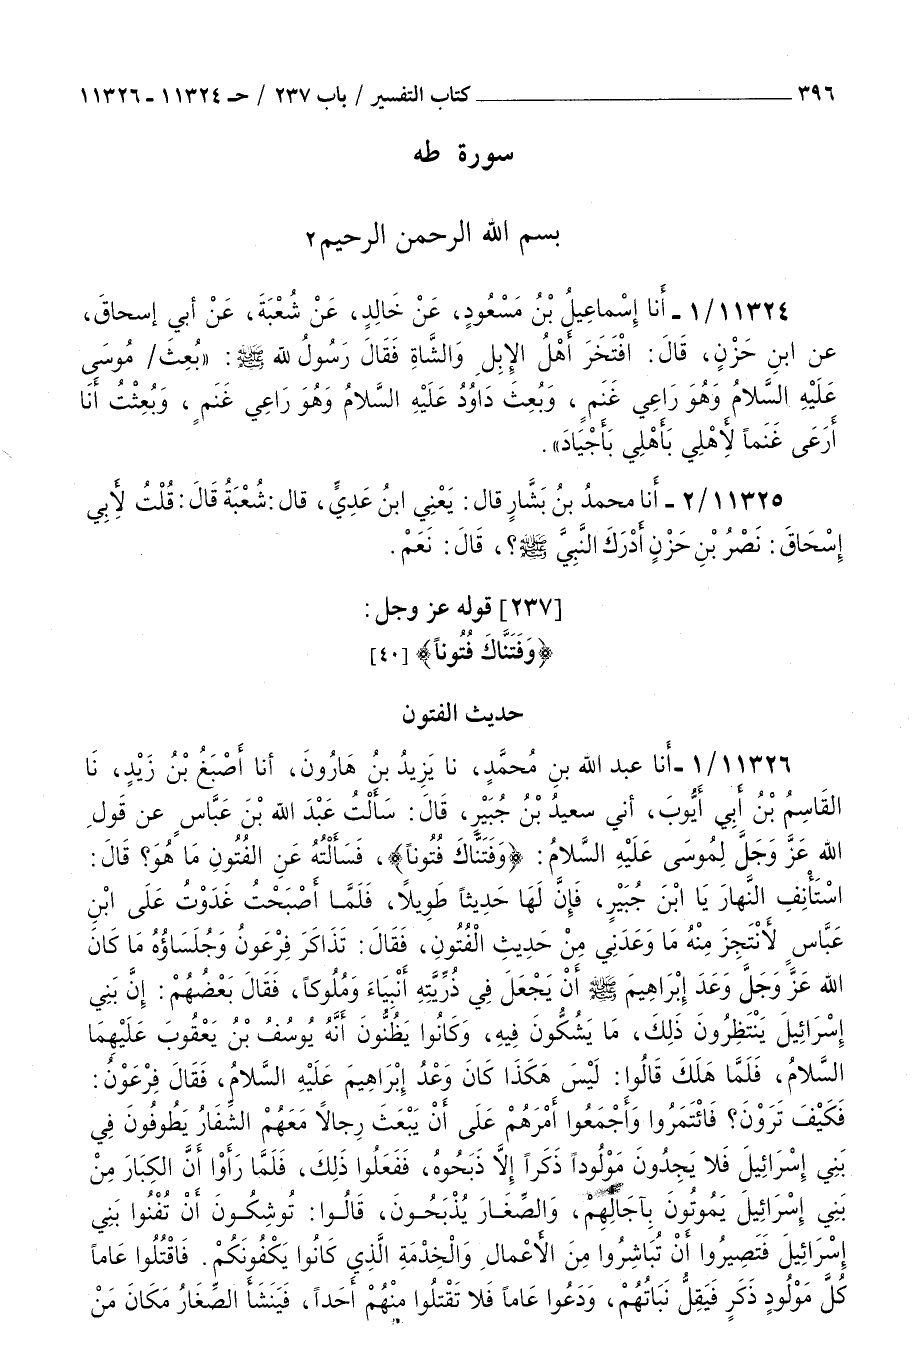 ٣٩٦ ــــــــ كتاب التفسير / باب ٢٣٧ / حـ ١١٣٢٤ - ١١٣٢٦
سورة طه
بسم الله الرحمن الرحيم٢
١/١١٣٢٤ ـ أَنا إِسْماعِيلُ بْنُ مَسْعُودٍ، عَنْ خَالِدٍ، عَنْ شُعْبَةَ، عَنْ أبي إسحاقَ،
عن ابنِ حَزْنٍ، قَالَ: افْتَخَرَ أَهْلُ الإِبِلِ وَالشَّاةِ فَقَالَ رَسُولُ لله ﷺ: «بُعِثَ/ مُوسَى
عَلَيْهِ السَّلامُ وَهُوَ رَاعِي غَنَمٍ، وَبُعِثَ دَاوُدُ عَلَيْهِ السَّلامُ وَهُوَ رَاعِي غَنَمٍ، وَبُعِثْتُ أَنَا
أَرَعَى غَنَماً لِأَهْلِي بَأَهْلِي بَأَجْيَادَ».
٢/١١٣٢٥ ـ أَنا محمدُ بنُ بَشَّارٍ قال: يَعْنِي ابنُ عَدِيٍّ، قال: شُعْبَةُ قَالَ: قُلْتُ لِأَبِي
إِسْحَاقَ: نَصْرُ بْنِ حَزْنٍ أَدْرَكَ النَّبِيَّ ﷺ؟، قَالَ: نَعَمْ.
[٢٣٧] قوله عز وجل:
﴿وَفَتَنَّاكَ فُتُوناً﴾ [٤٠]
حديث الفتون
١/١١٣٢٦ ـ أَنا عبد الله بنِ مُحمَّدٍ، نا يَزِيدُ بنُ هَارُونَ، أنا أَصْبَغُ بْنُ زَيْدٍ، نَا
القَاسِمُ بْنُ أَبِي أَيُّوبَ، أني سعيدُ بْنُ جُبَيْرٍ، قَالَ: سَأَلْتُ عَبْدَ الله بْنَ عَبَّاسٍ عن قولِ
الله عَزَّ وَجَلَّ لِمُوسَى عَلَيْهِ السَّلامُ: ﴿وَفَتَنَّاكَ فُتُوناً﴾، فَسَأَلْتُهُ عَنِ الفُتُونِ مَا هُوَ؟ قَالَ:
اسْتَأْنِفِ النَّهارَ يَا ابْنَ جُبَيْرٍ، فَإِنَّ لَهَا حَدِيثاً طَوِيلاً، فَلَمَّا أَصْبَحْتُ غَدَوْتُ عَلَى ابْنِ
عَبَّاسٍ لأَنْتَجِزَ مِنْهُ مَا وَعَدَنِي مِنْ حَدِيثِ الْفُتُونِ، فَقَالَ: تَذَاكَرَ فِرْعَونُ وَجُلَسَاؤُهُ مَا كَانَ
الله عَزَّ وَجَلَّ وَعَدَ إِبْرَاهِيمَ ﷺ أَنْ يَجْعَلَ فِي ذُرِّيَّتِهِ أَنْبِيَاءَ وَمُلُوكاً، فَقَالَ بَعْضُهُمْ: إِنَّ بَنِي
إِسْرَائِيلَ يَنْتَظِرُونَ ذَلِكَ، مَا يَشُكُّونَ فِيهِ، وَكَانُوا يَظُنُّونَ أَنَّهُ يُوسُفُ بْنُ يَعْقُوبَ عَلَيْهِمَا
السَّلامُ، فَلَمَّا هَلَكَ قَالُوا: لَيْسَ هَكَذَا كَانَ وَعْدُ إِبْرَاهِيمَ عَلَيْهِ السَّلامُ، فَقَالَ فِرْعَوْنُ:
فَكَيْفَ تَرَوْنَ؟ فَائْتَمَرُوا وَأَجْمَعُوا أَمْرَهُمْ عَلَى أَنْ يَبْعَثَ رِجالاً مَعَهُمْ الشِّفَارُ يَطُوفُونَ فِي
بَنِي إِسْرَائِيلَ فَلا يَجِدُونَ مَوْلُوداً ذَكَراً إِلَّا ذَبَحُوهُ، فَفَعَلُوا ذَلِكَ، فَلَمَّا رَأَوْا أَنَّ الكِبَارَ مِنْ
بَنِي إِسْرَائِيلَ يَمُوتُونَ بِآجَالِهِمْ، وَالصِّغَارَ يُذْبَحُونَ، قَالُوا: تُوشِكُونَ أَنْ تُفْنُوا بَنِي
إِسْرَائِيلَ فَتَصِيرُوا أَنْ تُبَاشِرُوا مِنَ الأَعْمالِ وَالْخِدْمَةِ الَّذِي كَانُوا يَكْفُونَكُمْ. فَاقْتُلُوا عَاماً
كُلَّ مَوْلُودٍ ذَكَرٍ فَيَقِلُّ نَبَاتُهُمْ، وَدَعُوا عَاماً فَلا تَقْتُلوا مِنْهُمْ أَحَداً، فَيَنْشَأَ الصِّغَارُ مَكَانَ مَنْ